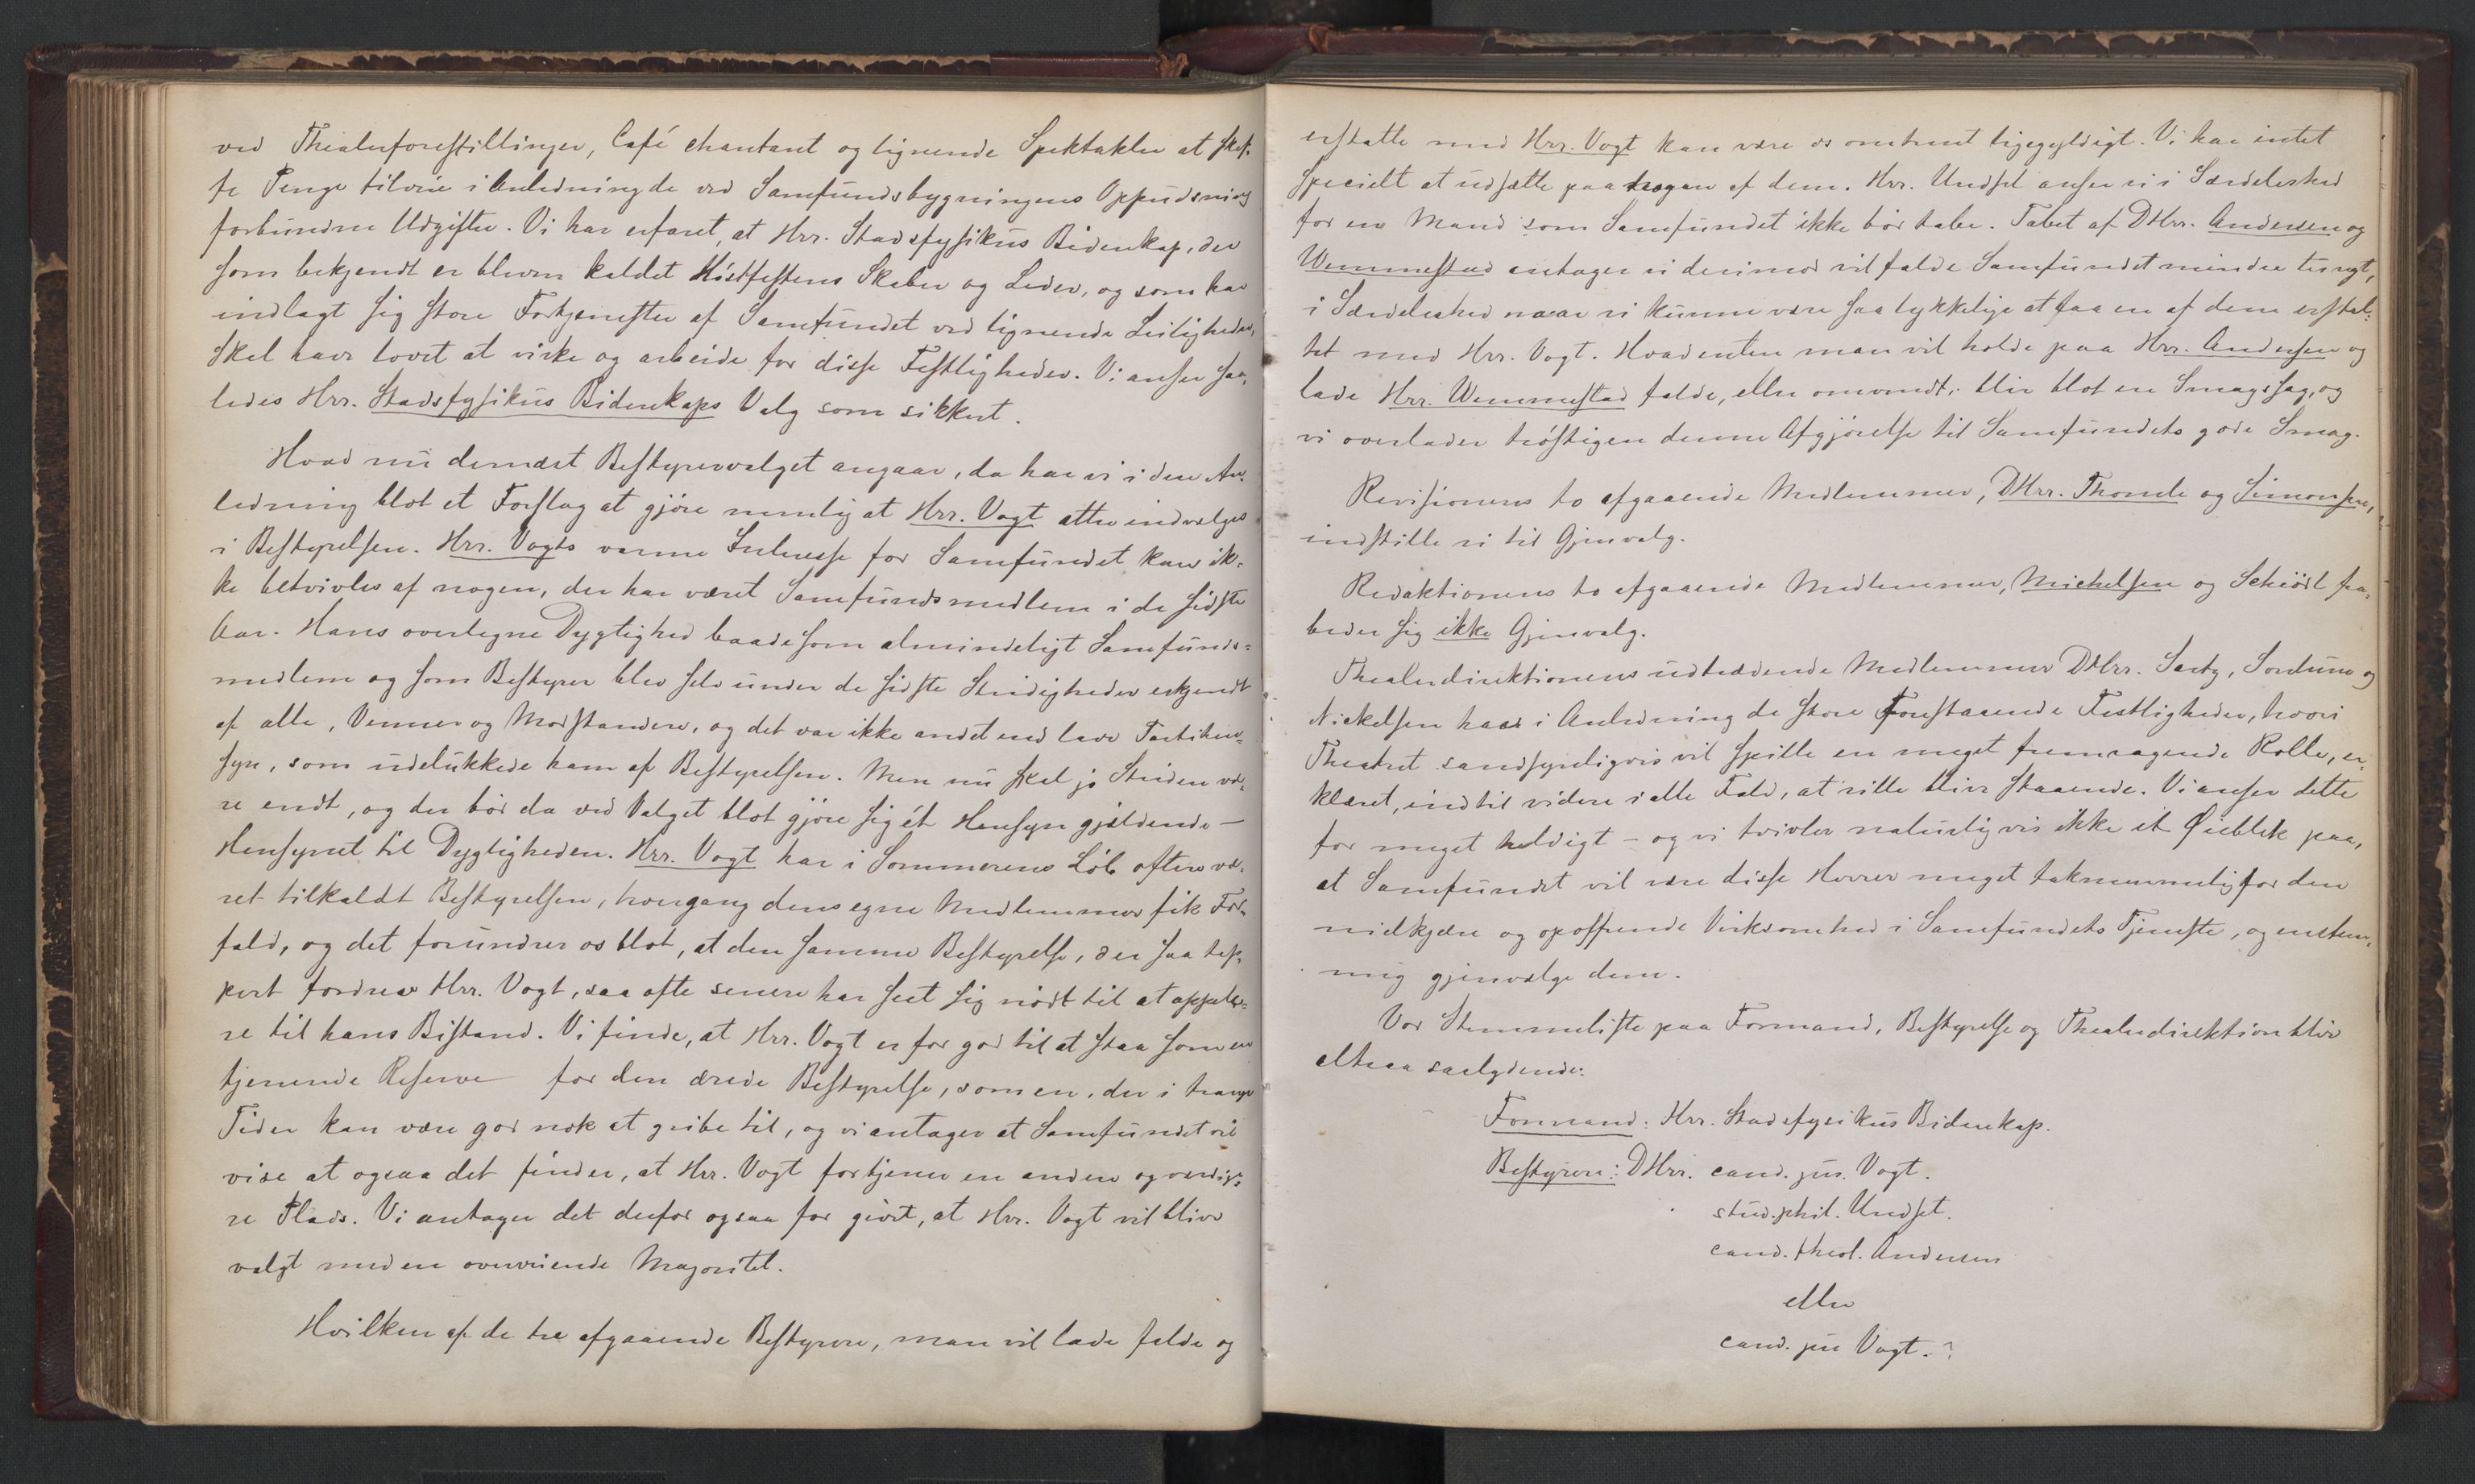 ved Theaterforestillinger, Café chantant og lignende Spektakler at skaf-
fe Penge tilveie i Anledning de ved Samfundsbygningens Oppudsning
forbundne Udgifter. Vi har erfaret, at Hrr. Stadsfysikus Bidenkap, der
som bekjendt er bleven kaldet Höstfestens Skaber og Leder, og som har
indlagt sig store Fortjenester af Samfundet ved lignende Leiligheder,
skal have lovet at virke og arbeide for disse Festligheder. Vi anser saa-
ledes Hrr. Stadsfysikus Bidenkaps Valg som sikkert.
Hvad nu dernæst Bestyrervalget angaar, da har vi i den An-
ledning blot et Forslag at gjöre nemlig at Hrr. Vogt atter indvælges
i Bestyrelsen. Hrr. Vogts varme Interesse for Samfundet kan ik-
ke betvivles af nogen, der har været Samfundsmedlem i de sidste
Aar. Hans overlegne Dygtighed baade som almindeligt Samfunds-
medlem og som Bestyrer blev selv under de sidste Stridigheder erkjendt
af alle, Venner og Modstandere, og det var ikke andet end lave Partihen-
syn, som udelukkede ham af Bestyrelsen. Men nu skal jo Striden væ-
re endt, og der bör da ved Valget blot gjöre sig ét Hensyn gjældende –
Hensynet til Dygtigheden. Hrr. Vogt har i Sommerens Löb oftere væ-
ret tilkaldt Bestyrelsen, hvergang dens egne Medlemmer fik For-
fald, og det forundrer os blot, at den samme Bestyrelse, der saa tap-
pert fordrev Hrr. Vogt, saa ofte senere har seet sig nödt til at appele-
re til hans Bistand. Vi finde, at Hrr. Vogt er for god til at staa som en
tjenende Reserve for den ærede Bestyrelse, som en, der i trange
Tider kan være god nok at gribe til, og vi antager at Samfundet vil
vise at ogsaa det finder, at Hrr. Vogt fortjener en anden og værdige-
re Plads. Vi antager det derfor ogsaa for givet, at Hrr. Vogt vil blive
valgt med en overveiende Majoritet.
Hvilken af de tre afgaaende Bestyrere, man vil lade falde og
erstatte med Hrr. Vogt kan være os omtrent ligegyldigt. Vi har intet
specielt at udsætte paa nogen af dem. Hrr. Undset anser vi i Særdeleshed
for en Mand som Samfundet ikke bör tabe. Tabet af DHrr. Andersen og
Wemmestad antager vi derimod vil falde Samfundet mindre tungt,
i Særdeleshed naar vi kunne være saa lykkelige at faa en af dem erstat-
tet med Hrr. Vogt. Hvadenten man vil holde paa Hrr. Andersen og
lade Hrr. Wemmestad falde, eller omvendt, blir blot en Smagssag, og
vi overlader tröstigen denne Afgjörelse til Samfundets gode Smag.
Revisionens to afgaaende Medlemmer, DHrr. Thomle og Simonsen,
indstille vi til Gjenvalg.
Redaktionens to afgaaende Medlemmer, Michelsen og Schiött fra-
beder sig ikke Gjenvalg.
Theaterdirektionens udtrædende Medlemmer DHrr. Sartz, Sordum og
Nickelsen har i Anledning de store forestaaende Festligheder, hvori
Theatret sandsynligvis vil spille en meget fremragende Rolle, er-
klæret, indtil videre i alle Fald, at ville blive staaende. Vi anser dette
for meget heldigt – og vi tvivler naturligvis ikke et Öieblik paa,
at Samfundet vil være disse Herrer meget taknemmelig for den
nidkjære og opoffrende Virksomhed i Samfundets Tjeneste, og enstem-
mig gjenvælge dem.
Vor Stemmeliste paa Formand, Bestyrelse og Theaterdirektion blir
altsaa saalydende:
Formand: Hrr. Stadsfysikus Bidenkap.
Bestyrere: DHrr. cand. jur. Vogt.
stud. phil. Undset.
cand. theol. Andersen
eller
cand. jur Vogt. ?